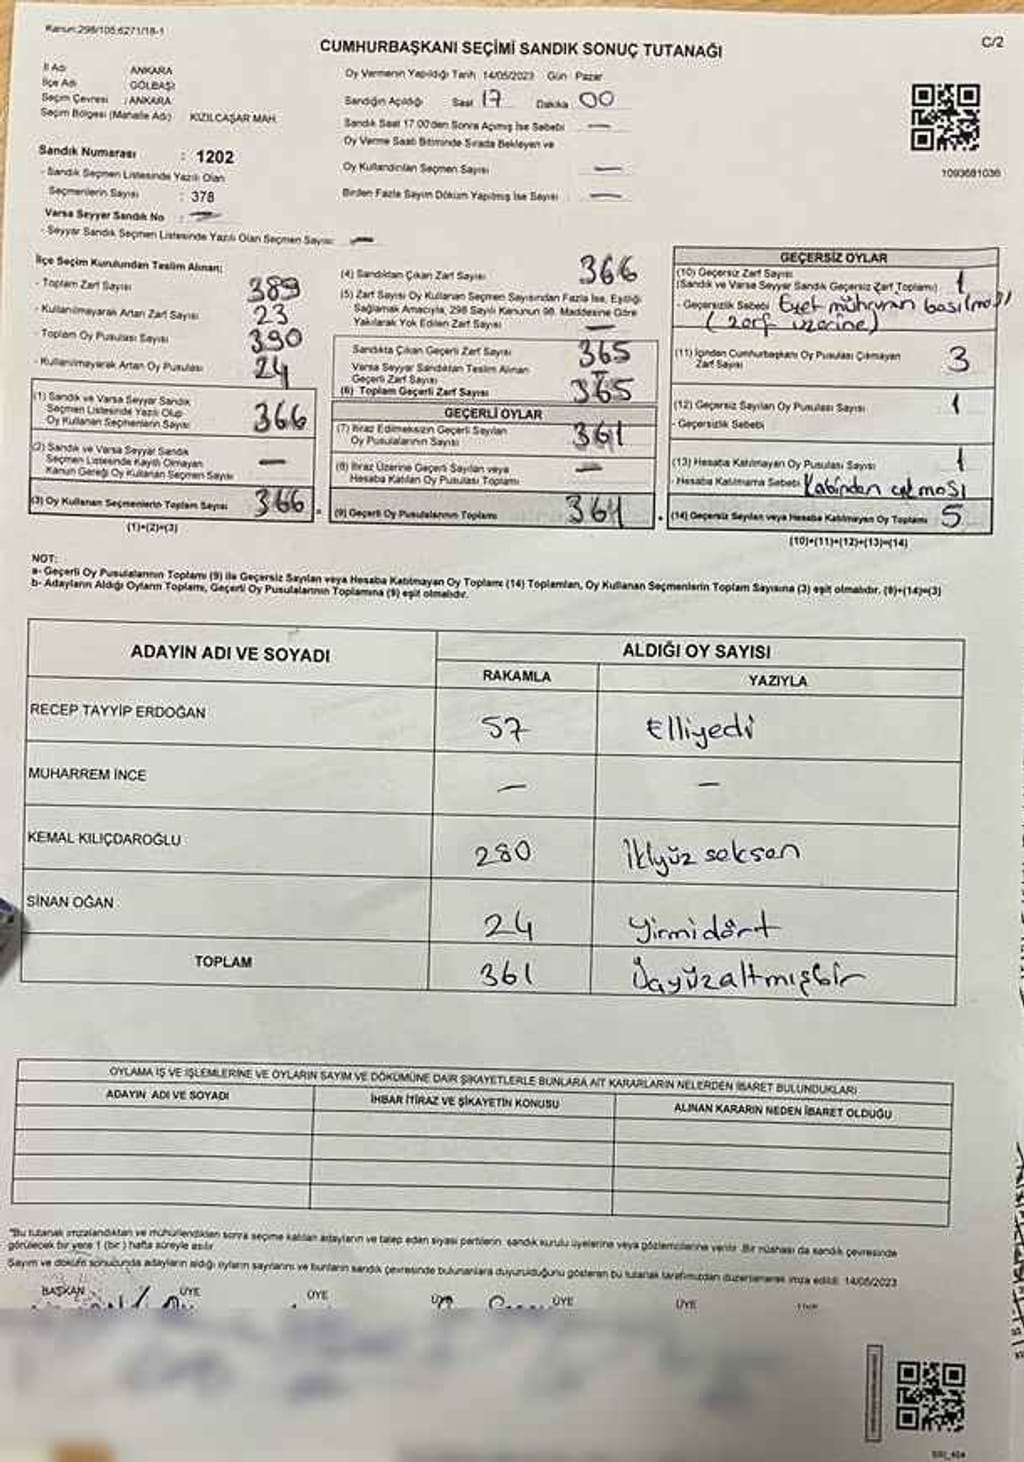 Kanun:298/105,6271/18-1
C/2
CUMHURBAŞKANI SEÇİMİ SANDIK SONUÇ TUTANAĞI
İl Adı ANKARA
İlçe Adı GÖLBAŞI
Seçim Çevresi : ANKARA
Seçim Bölgesi (Mahalle Adı) KIZILCAŞAR MAH.
Oy Vermenin Yapıldığı Tarih 14/05/2023 Gün Pazar
Sandığın Açıldığı Saat 17 Dakika 00
Sandık Saat 17.00'den Sonra Açılmış İse Sebebi —
Oy Verme Saati Bitiminde Sırada Bekleyen ve
Oy Kullandırılan Seçmen Sayısı —
Birden Fazla Sayım Döküm Yapılmış İse Sayısı —
1093681036
Sandık Numarası : 1202
- Sandık Seçmen Listesinde Yazılı Olan
Seçmenlerin Sayısı : 378
Varsa Seyyar Sandık No : —
- Seyyar Sandık Seçmen Listesinde Yazılı Olan Seçmen Sayısı: —
İlçe Seçim Kurulundan Teslim Alınan:
- Toplam Zarf Sayısı 389
- Kullanılmayarak Artan Zarf Sayısı 23
- Toplam Oy Pusulası Sayısı 390
- Kullanılmayarak Artan Oy Pusulası 24
(1) Sandık ve Varsa Seyyar Sandık
Seçmen Listesinde Yazılı Olup
Oy Kullanan Seçmenlerin Sayısı 366
(2) Sandık ve Varsa Seyyar Sandık
Seçmen Listesinde Kayıtlı Olmayan
Kanun Gereği Oy Kullanan Seçmen Sayısı —
(3) Oy Kullanan Seçmenlerin Toplam Sayısı 366
(1)+(2)=(3)
(4) Sandıktan Çıkan Zarf Sayısı 366
(5) Zarf Sayısı Oy Kullanan Seçmen Sayısından Fazla İse, Eşitliği
Sağlamak Amacıyla, 298 Sayılı Kanunun 98. Maddesine Göre
Yakılarak Yok Edilen Zarf Sayısı —
Sandıkta Çıkan Geçerli Zarf Sayısı 365
Varsa Seyyar Sandıktan Teslim Alınan
Geçerli Zarf Sayısı —
(6) Toplam Geçerli Zarf Sayısı 365
GEÇERLİ OYLAR
(7) İtiraz Edilmeksizin Geçerli Sayılan
Oy Pusulalarının Sayısı 361
(8) İtiraz Üzerine Geçerli Sayılan veya
Hesaba Katılan Oy Pusulası Toplamı —
(9) Geçerli Oy Pusulalarının Toplamı 361
GEÇERSİZ OYLAR
(10) Geçersiz Zarf Sayısı
(Sandık ve Varsa Seyyar Sandık Geçersiz Zarf Toplamı) 1
- Geçersizlik Sebebi Evet mührünün basılması
(zarf üzerine)
(11) İçinden Cumhurbaşkanı Oy Pusulası Çıkmayan
Zarf Sayısı 3
(12) Geçersiz Sayılan Oy Pusulası Sayısı 1
- Geçersizlik Sebebi
(13) Hesaba Katılmayan Oy Pusulası Sayısı 1
- Hesaba Katılmama Sebebi Kabinden çıkması
(14) Geçersiz Sayılan veya Hesaba Katılmayan Oy Toplamı 5
(10)+(11)+(12)+(13)=(14)
NOT:
a- Geçerli Oy Pusulalarının Toplamı (9) ile Geçersiz Sayılan veya Hesaba Katılmayan Oy Toplamı (14) Toplamları, Oy Kullanan Seçmenlerin Toplam Sayısına (3) eşit olmalıdır. (9)+(14)=(3)
b- Adayların Aldığı Oyların Toplamı, Geçerli Oy Pusulalarının Toplamına (9) eşit olmalıdır.
ADAYIN ADI VE SOYADI ALDIĞI OY SAYISI
RAKAMLA YAZIYLA
RECEP TAYYİP ERDOĞAN 57 Elliyedi
MUHARREM İNCE — —
KEMAL KILIÇDAROĞLU 280 İkiyüz seksen
SİNAN OĞAN 24 Yirmidört
TOPLAM 361 Üçyüzaltmışbir
OYLAMA İŞ VE İŞLEMLERİNE VE OYLARIN SAYIM VE DÖKÜMÜNE DAİR ŞİKAYETLERLE BUNLARA AİT KARARLARIN NELERDEN İBARET BULUNDUKLARI
ADAYIN ADI VE SOYADI İHBAR İTİRAZ VE ŞİKAYETİN KONUSU ALINAN KARARIN NEDEN İBARET OLDUĞU
"Bu tutanak imzalandıktan ve mühürlendikten sonra seçime katılan adayların ve talep eden siyasi partilerin sandık kurulu üyelerine veya gözlemcilerine verilir. Bir nüshası da sandık çevresinde
görülecek bir yere 1 (bir) hafta süreyle asılır
Sayım ve döküm sonucunda adayların aldığı oyların sayılarını ve bunların sandık çevresinde bulunanlara duyurulduğunu gösteren bu tutanak tarafımızdan düzenlenerek imza edildi. 14/05/2023
BAŞKAN ÜYE ÜYE ÜYE ÜYE ÜYE